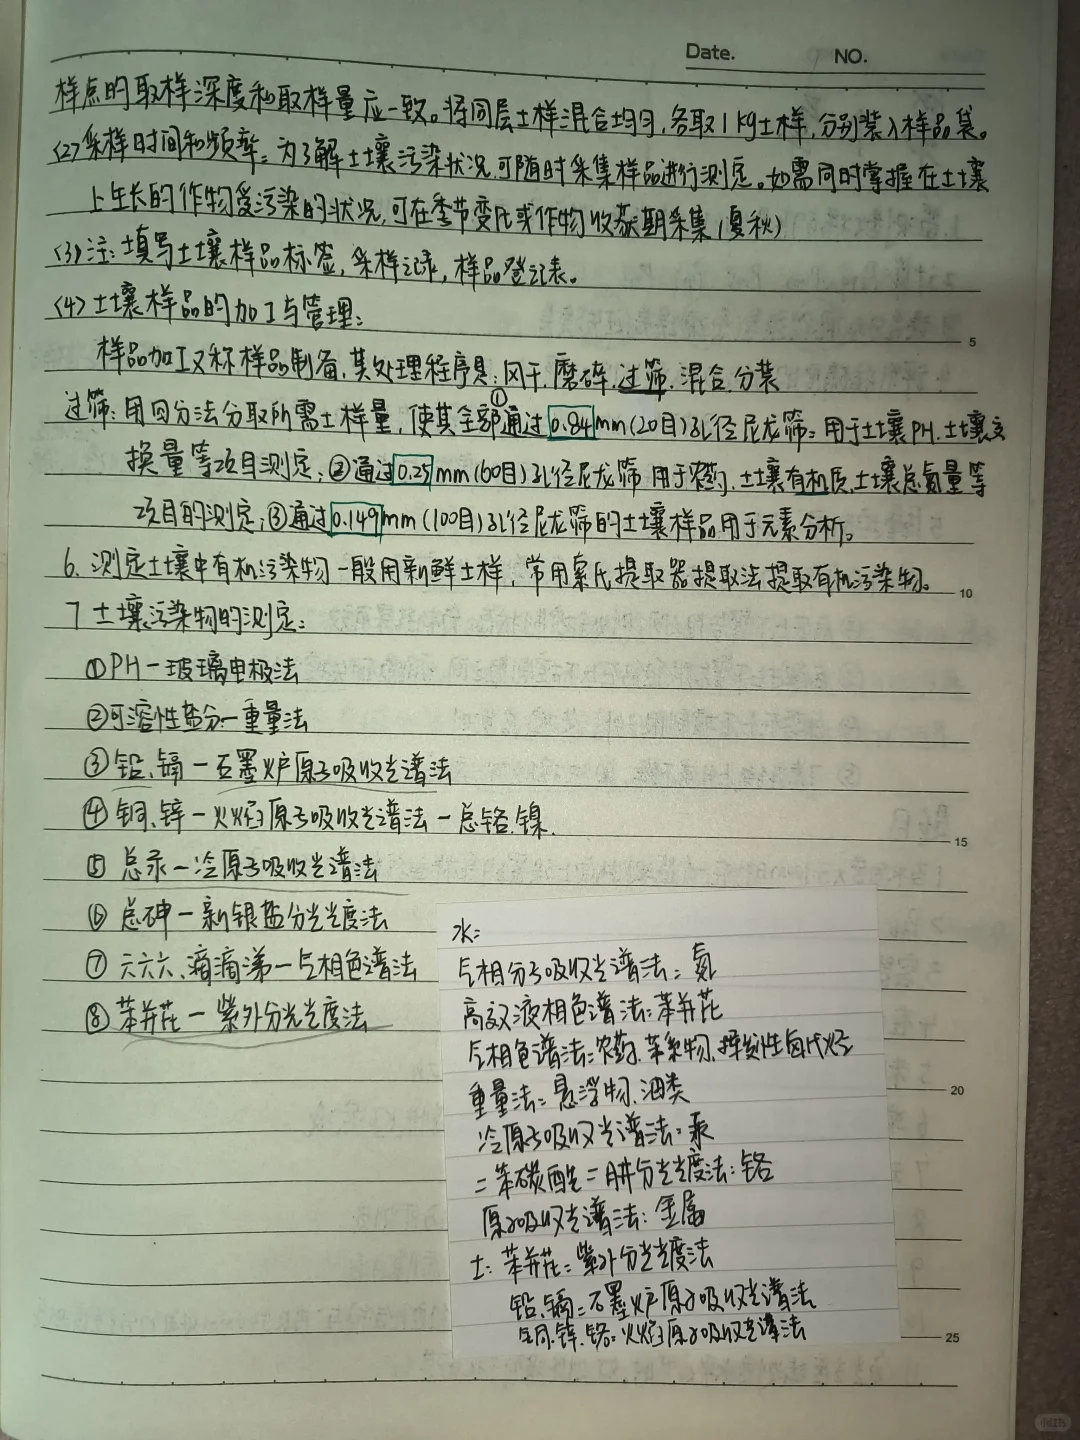 Date.
NO.
样点的取样深度和取样量应一致。将同层土样混合均匀,各取1kg土样,分别装入样品袋。
(2)采样时间和频率:为了解土壤污染状况,可随时采集样品进行测定。如需同时掌握在土壤
上生长的作物受污染的状况,可在季节变化或作物收获期采集(夏秋)
(3)注:填写土壤样品标签,采样记录,样品登记表。
(4)土壤样品的加工与管理:
5
样品加工又称样品制备,其处理程序是:风干,磨碎,过筛,混合,分装
过筛:用四分法分取所需土样量,使其全部①通过0.84mm(20目)孔径尼龙筛:用于土壤PH,土壤交
换量等项目测定;②通过0.25mm(60目)孔径尼龙筛用于农药,土壤有机质,土壤总氮量等
项目的测定;③通过0.149mm(100目)孔径尼龙筛的土壤样品用于元素分析。
6.测定土壤中有机污染物一般用新鲜土样,常用索氏提取器提取法提取有机污染物。
10
7 土壤污染物的测定:
①PH-玻璃电极法
②可溶性盐分-重量法
③铅、镉-石墨炉原子吸收光谱法
④铜、锌-火焰原子吸收光谱法-总铬.镍.
15
⑤总汞-冷原子吸收光谱法
⑥总砷-新银盐分光光度法
⑦六六六、滴滴涕-气相色谱法
⑧苯并芘-紫外分光光度法
水:
气相分子吸收光谱法:氮
高效液相色谱法:苯并芘
气相色谱法:农药.苯系物.挥发性卤代烃
重量法:悬浮物.油类
20
冷原子吸收光谱法:汞
二苯碳酰二肼分光光度法:铬
原子吸收光谱法:金属
土:苯并芘:紫外分光光度法
铅、镉:石墨炉原子吸收光谱法
铜.锌.铬:火焰原子吸收光谱法
25
小红书